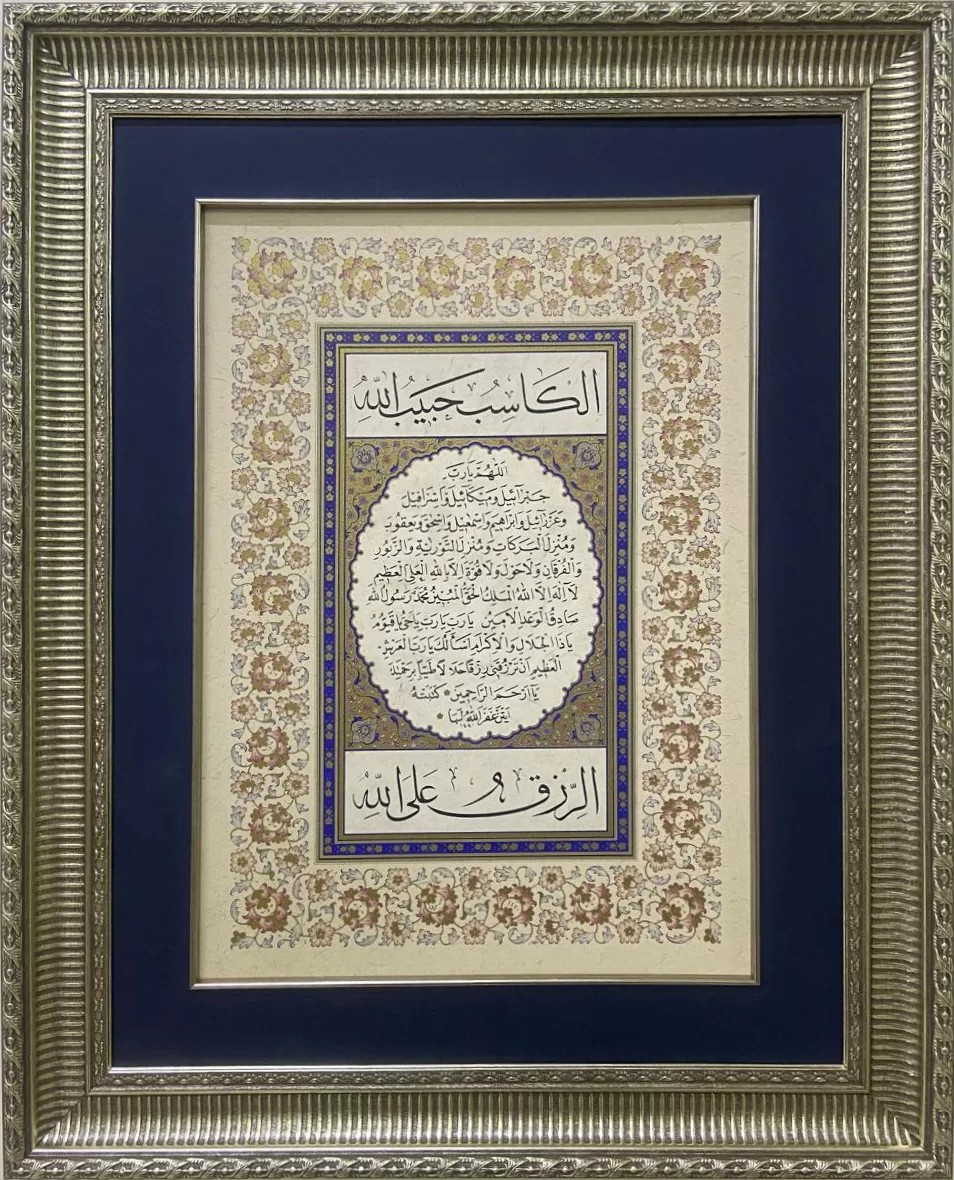 الكَاسِبُ حَبِيبُ اللّٰهِ
اَللّٰهُمَّ يَارَبَّ
جَبْرَآئِيلَ وَمِيكَآئِيلَ وَاِسْرَافِيلَ
وَعَزْرَآئِيلَ وَاِبْرَاهِيمَ وَاِسْمٰعِيلَ وَاِسْحٰقَ وَيَعْقُوبَ
وَمُنْزِلَ الْبَرَكَاتِ وَمُنْزِلَ التَّوْرٰيةِ وَالزَّبُورِ
وَالْفُرْقَانِ وَلَاحَوْلَ وَلَا قُوَّةَ اِلَّا بِاللّٰهِ الْعَلِىِّ الْعَظِيمِ
لَآ اِلٰهَ اِلَّا اللّٰهُ الْمَلِكُ الْحَقُّ الْمُبِينُ مُحَمَّدٌ رَسُولُ اللّٰهِ
صَادِقُ الْوَعْدِ الْاَمِينُ يَارَبِّ يَارَبِّ يَاحَىُّ يَاقَيُّومُ
يَاذَا الْجَلَالِ وَالْاِكْرَامِ اَسْأَلُكَ يَارَبَّ الْعَرْشِ
الْعَظِيمِ اَنْ تَرْزُقَنِى رِزْقًا حَلَالًا طَيِّبًا بِرَحْمَتِكَ
يَآ اَرْحَمَ الرَّاحِمِينَ * كَتَبَتْهُ
غَفَرَ اللّٰهُ لَهَا *
الرِّزْقُ عَلَى اللّٰهِ